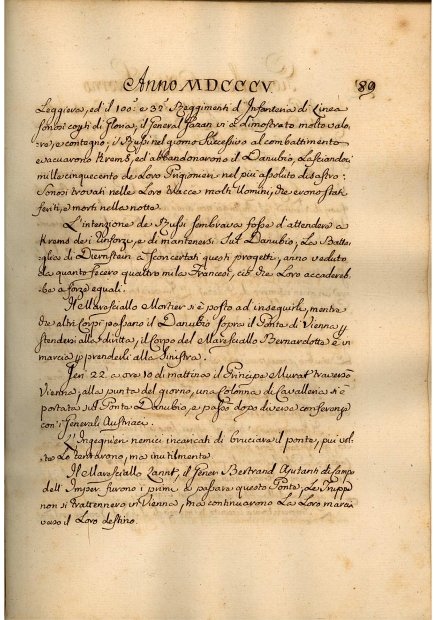 Anno MDCCCV.
89
Leggiera, ed il 100.º e 32.º Reggimenti d'Infanteria di Linea
sonosi coperti di Gloria, il General Gazan vi è dimostrato molto valo-
re, e contegno; i Russi nel giorno successivo al combattimento
evacuarono Krems, ed abbandonarono il Danubio, lasciandoci
mille cinquecento de Loro Prigionieri nel più assoluto disastro:
Sonosi trovati nelle Loro tracce molti Uomini, che erono stati
feriti, e morti nella notte.
L'intenzione de Russi sembrava fosse d'attendere a
Krems dei rinforzi, e di mantenersi sul Danubio; La Batta-
glia di Diernstein à sconcertati questi progetti, anno veduto
da quanto fecero quattro mila Francesi, ciò che Loro accadereb-
be a forze equali.
Il Maresciallo Mortier si è posto ad inseguirli, mentre
che altri Corpi passano il Danubio sopra il Ponte di Vienna p
stendersi alla dritta, il Corpo del Maresciallo Bernardotte è in
marcia p prenderli alla sinistra.
Jeri 22 a ore 10 di mattina il Principe Murat traversò
Vienna, alla punta del giorno, una Colonna di Cavalleria si è
portata sul Ponte Danubio, e passò dopo diverse conferenze
con i Generali Austriaci.
L'Ingegnieri nemici incaricati di bruciare il ponte, più vol-
te Lo tentarono, ma inutilmente.
Il Maresciallo Lannes, il Gener Bertrand Ajutanti di Campo
dell' Imper. furono i primi a passare questo Ponte, Le Truppe
non si trattennero in Vienna, ma continuarono La Loro marcia
verso il Loro destino.